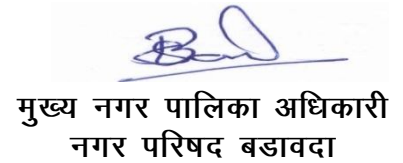 मुख्य नगर पालिका अधिकारी
नगर परिषद बडावदा